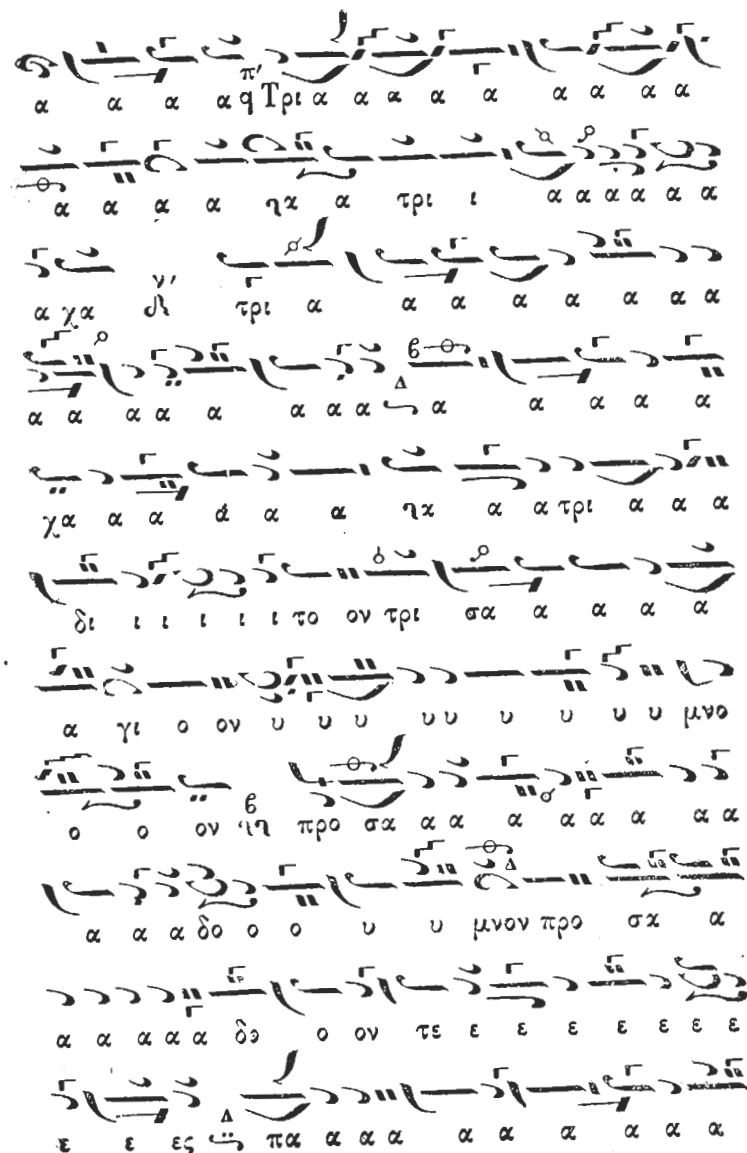 α α α α π̓ q Τρι α α α α α α α α α
α α α α ηχ α τρι ι α α α α α α α
α χα ν' τρι α α α α α α α α
α α α α α α α α Δ α α α α α
χα α α α α α ηχ α α τρι α α α
δι ι ι ι ι ι το ον τρι σα α α α α
α γι ο ον υ υ υ υ υ υ υ υ υ μνο
ο ο ον προ σα α α α α α α α α
α α α δο ο ο υ υ μνον προ σα α
α α α α α δε ο ον τε ε ε ε ε ε ε ε
ε ε ες Δ πα α α α α α α α α α